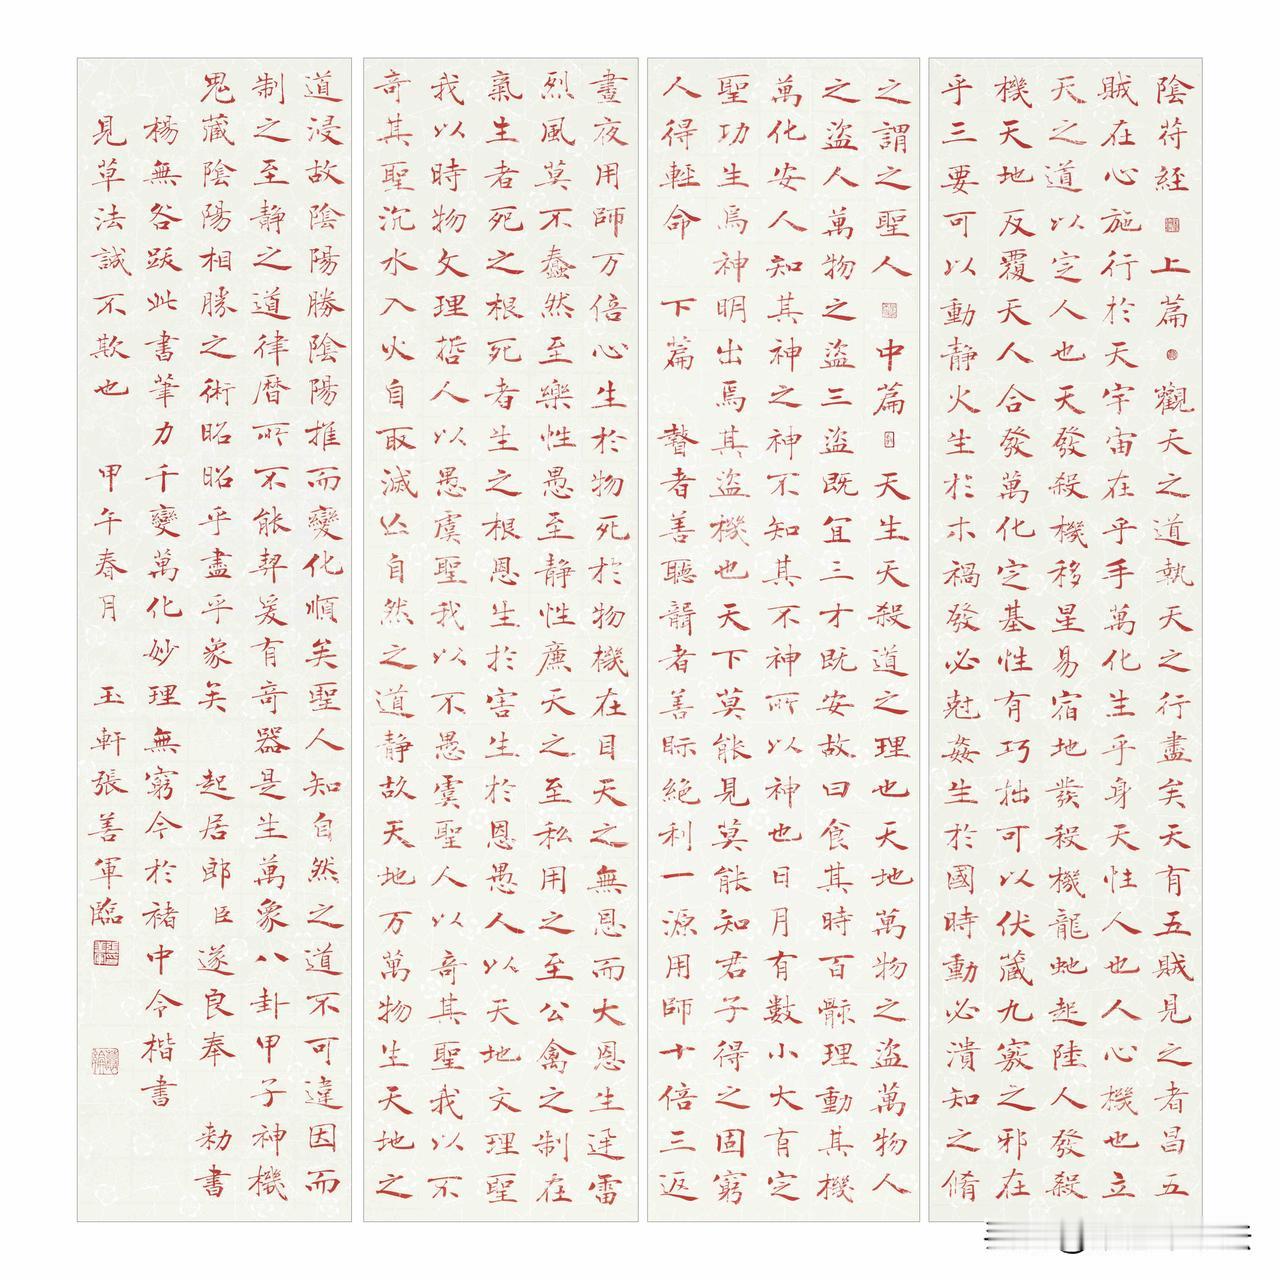 陰符經上篇觀天之道執天之行盡矣天有五賊見之者昌五
賊在心施行於天宇宙在乎手萬化生乎身天性人也人心機也立
天之道以定人也天發殺機移星易宿地發殺機龍虵起陸人發殺
機天地反覆天人合發萬化定基性有巧拙可以伏藏九竅之邪在
乎三要可以動静火生於木禍發必尅姦生於國時動必潰知之脩
之謂之聖人中篇天生天殺道之理也天地萬物之盜萬物人
之盜人萬物之盜三盜既宜三才既安故曰食其時百骸理動其機
萬化安人知其神之神不知其不神所以神也日月有數小大有定
聖功生焉神明出焉其盜機也天下莫能見莫能知君子得之固窮
人得輕命下篇瞽者善聽聾者善眎絕利一源用師十倍三返
晝夜用師万倍心生於物死於物機在目天之無恩而大恩生迅雷
烈風莫不蠢然至樂性愚至静性廉天之至私用之至公禽之制在
氣生者死之根死者生之根恩生於害害生於恩愚人以天地文理聖
我以時物文理哲人以愚虞聖我以不愚虞聖人以奇其聖我以不
奇其聖沉水入火自取滅亡自然之道静故天地万萬物生天地之
道浸故陰陽勝陰陽推而變化順矣聖人知自然之道不可違因而
制之至静之道律曆所不能契爰有奇器是生萬象八卦甲子神機
鬼藏陰陽相勝之術昭昭乎盡乎象矣起居郎臣遂良奉勅書
楊無咎跋此書筆力千變萬化妙理無窮今於褚中令楷書
見草法誠不欺也甲午春月玉軒張善軍臨